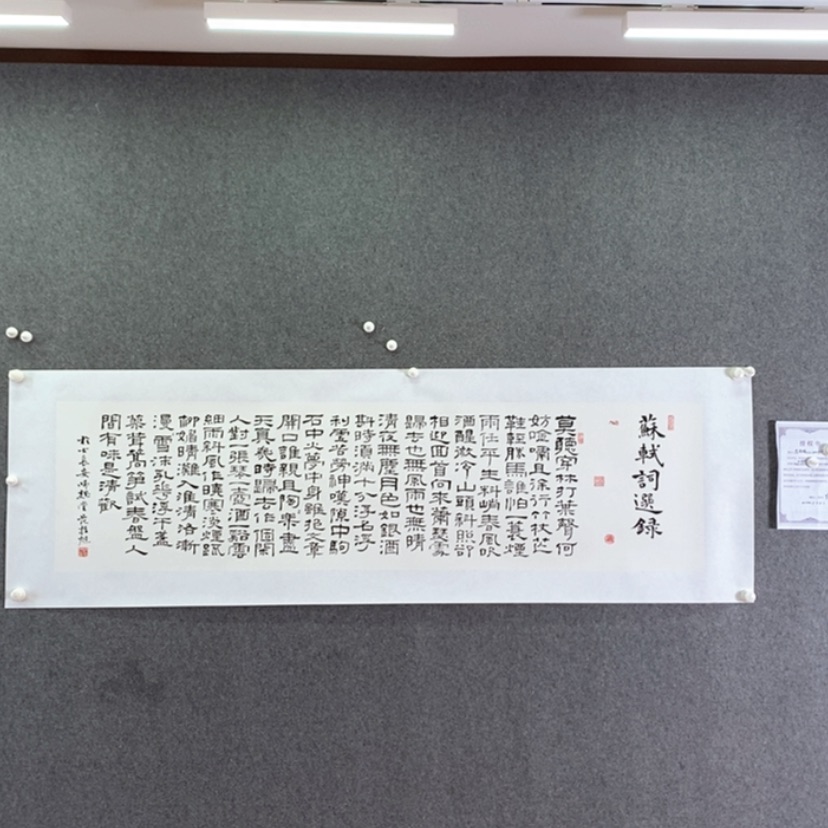 蘇軾詞選録
莫聽穿林打葉聲何
妨唫嘯且徐行竹杖芒
鞵輕勝馬誰怕一蓑煙
雨任平生料峭春風吹
酒醒微冷山頭斜照卻
相迎回首向來蕭瑟處
歸去也無風雨也無晴
清夜無塵月色如銀酒
斟時須滿十分浮名浮
利虛苦勞神嘆隙中駒
石中火夢中身雖抱文章
開口誰親且陶樂盡
天真幾時歸去作個閑
人對一張琴一壺酒一谿雲
細雨斜風作曉寒淡煙疏
柳媚晴灘入淮清洛漸
漫雪沫乳花浮午盞
蓼茸蒿筍試春盤人
間有味是清歡